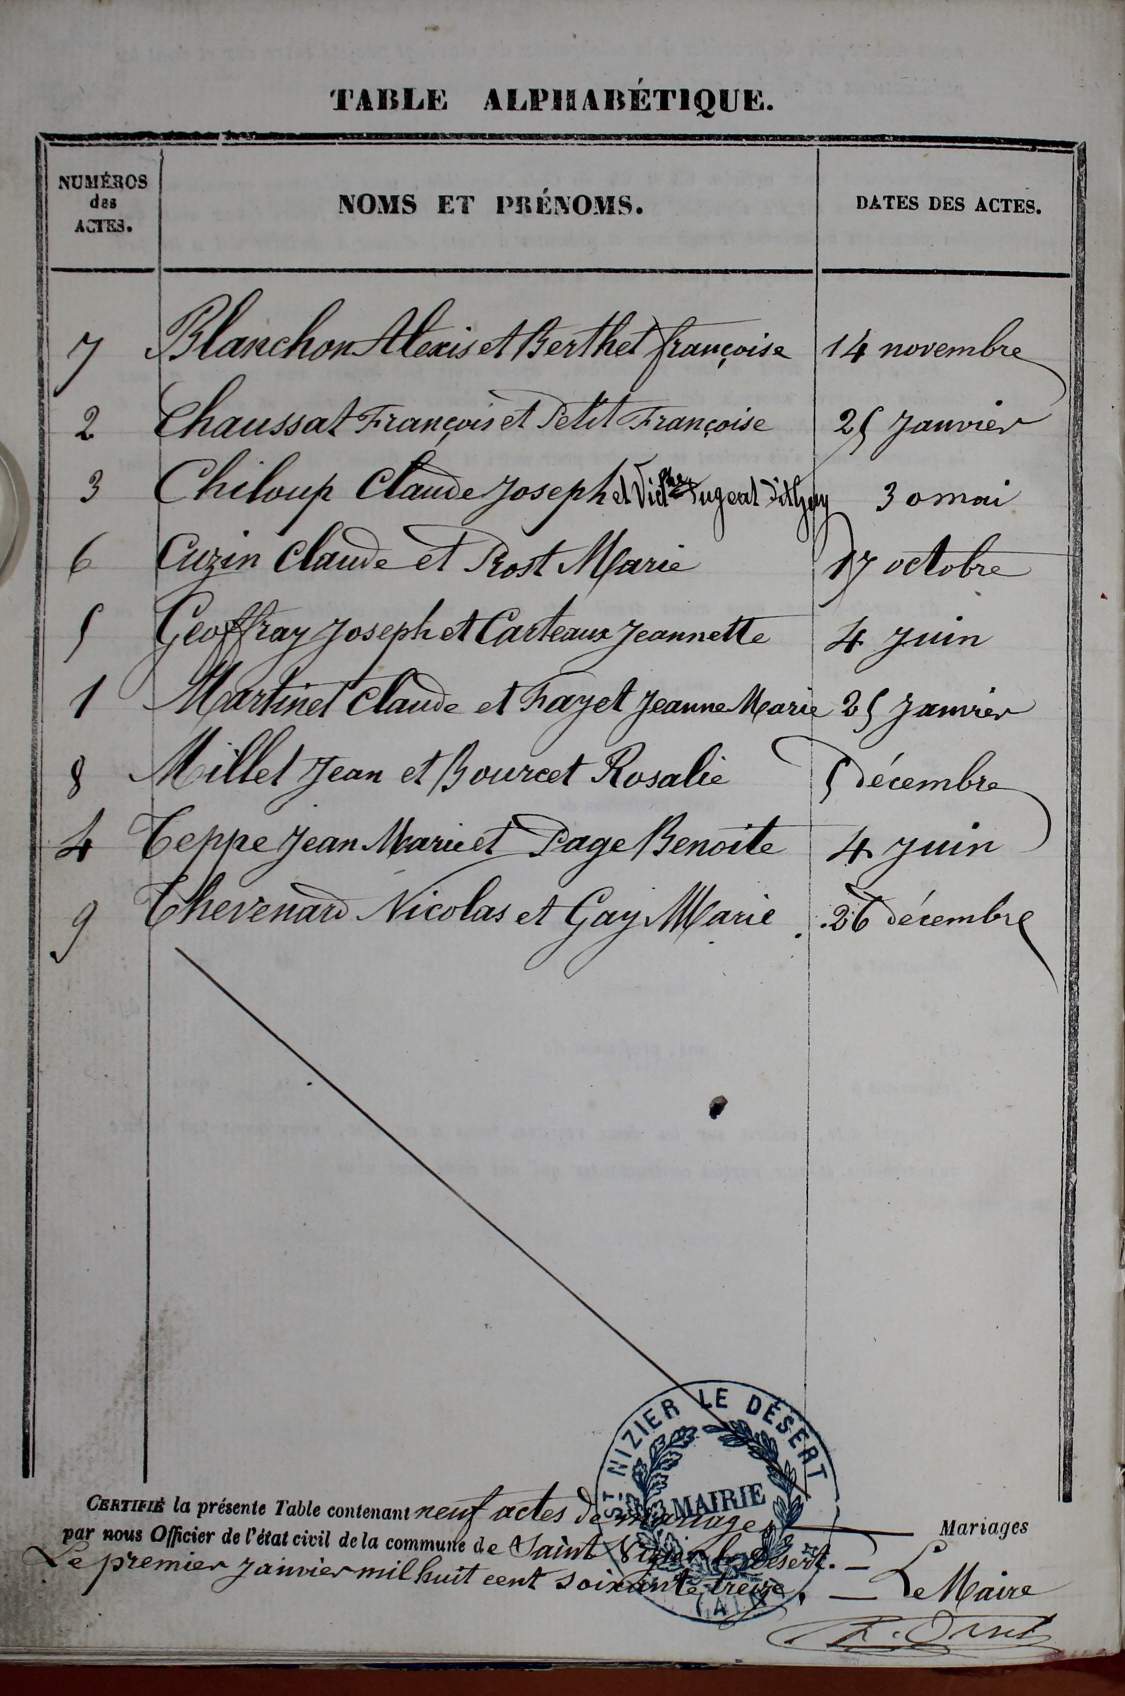 TABLE ALPHABÉTIQUE.
NUMÉROS des ACTES. NOMS ET PRÉNOMS. DATES DES ACTES.
7 Blanchon Alexis et Berthet françoise 14 novembre
2 Chaussat François et Petit Françoise 25 Janvier
3 Chiloup Claude Joseph et dit Guy 30 mai
6 Cuzin Claude et Rost Marie 17 octobre
5 Geoffray Joseph et Carteaux Jeannette 4 Juin
1 Martinet Claude et Fayet Jeanne Marie 25 Janvier
8 Millet Jean et Bourcet Rosalie 5 décembre
4 Teppe Jean Marie et Page Benoite 4 Juin
9 Thevenard Nicolas et Gay Marie 26 décembre
ST NIZIER LE DÉSERT
MAIRIE
CERTIFIÉ la présente Table contenant neuf actes de mariages Mariages
par nous Officier de l'état civil de la commune de Saint Nizier le Désert.
Le premier Janvier mil huit cent soixante treize. Le Maire